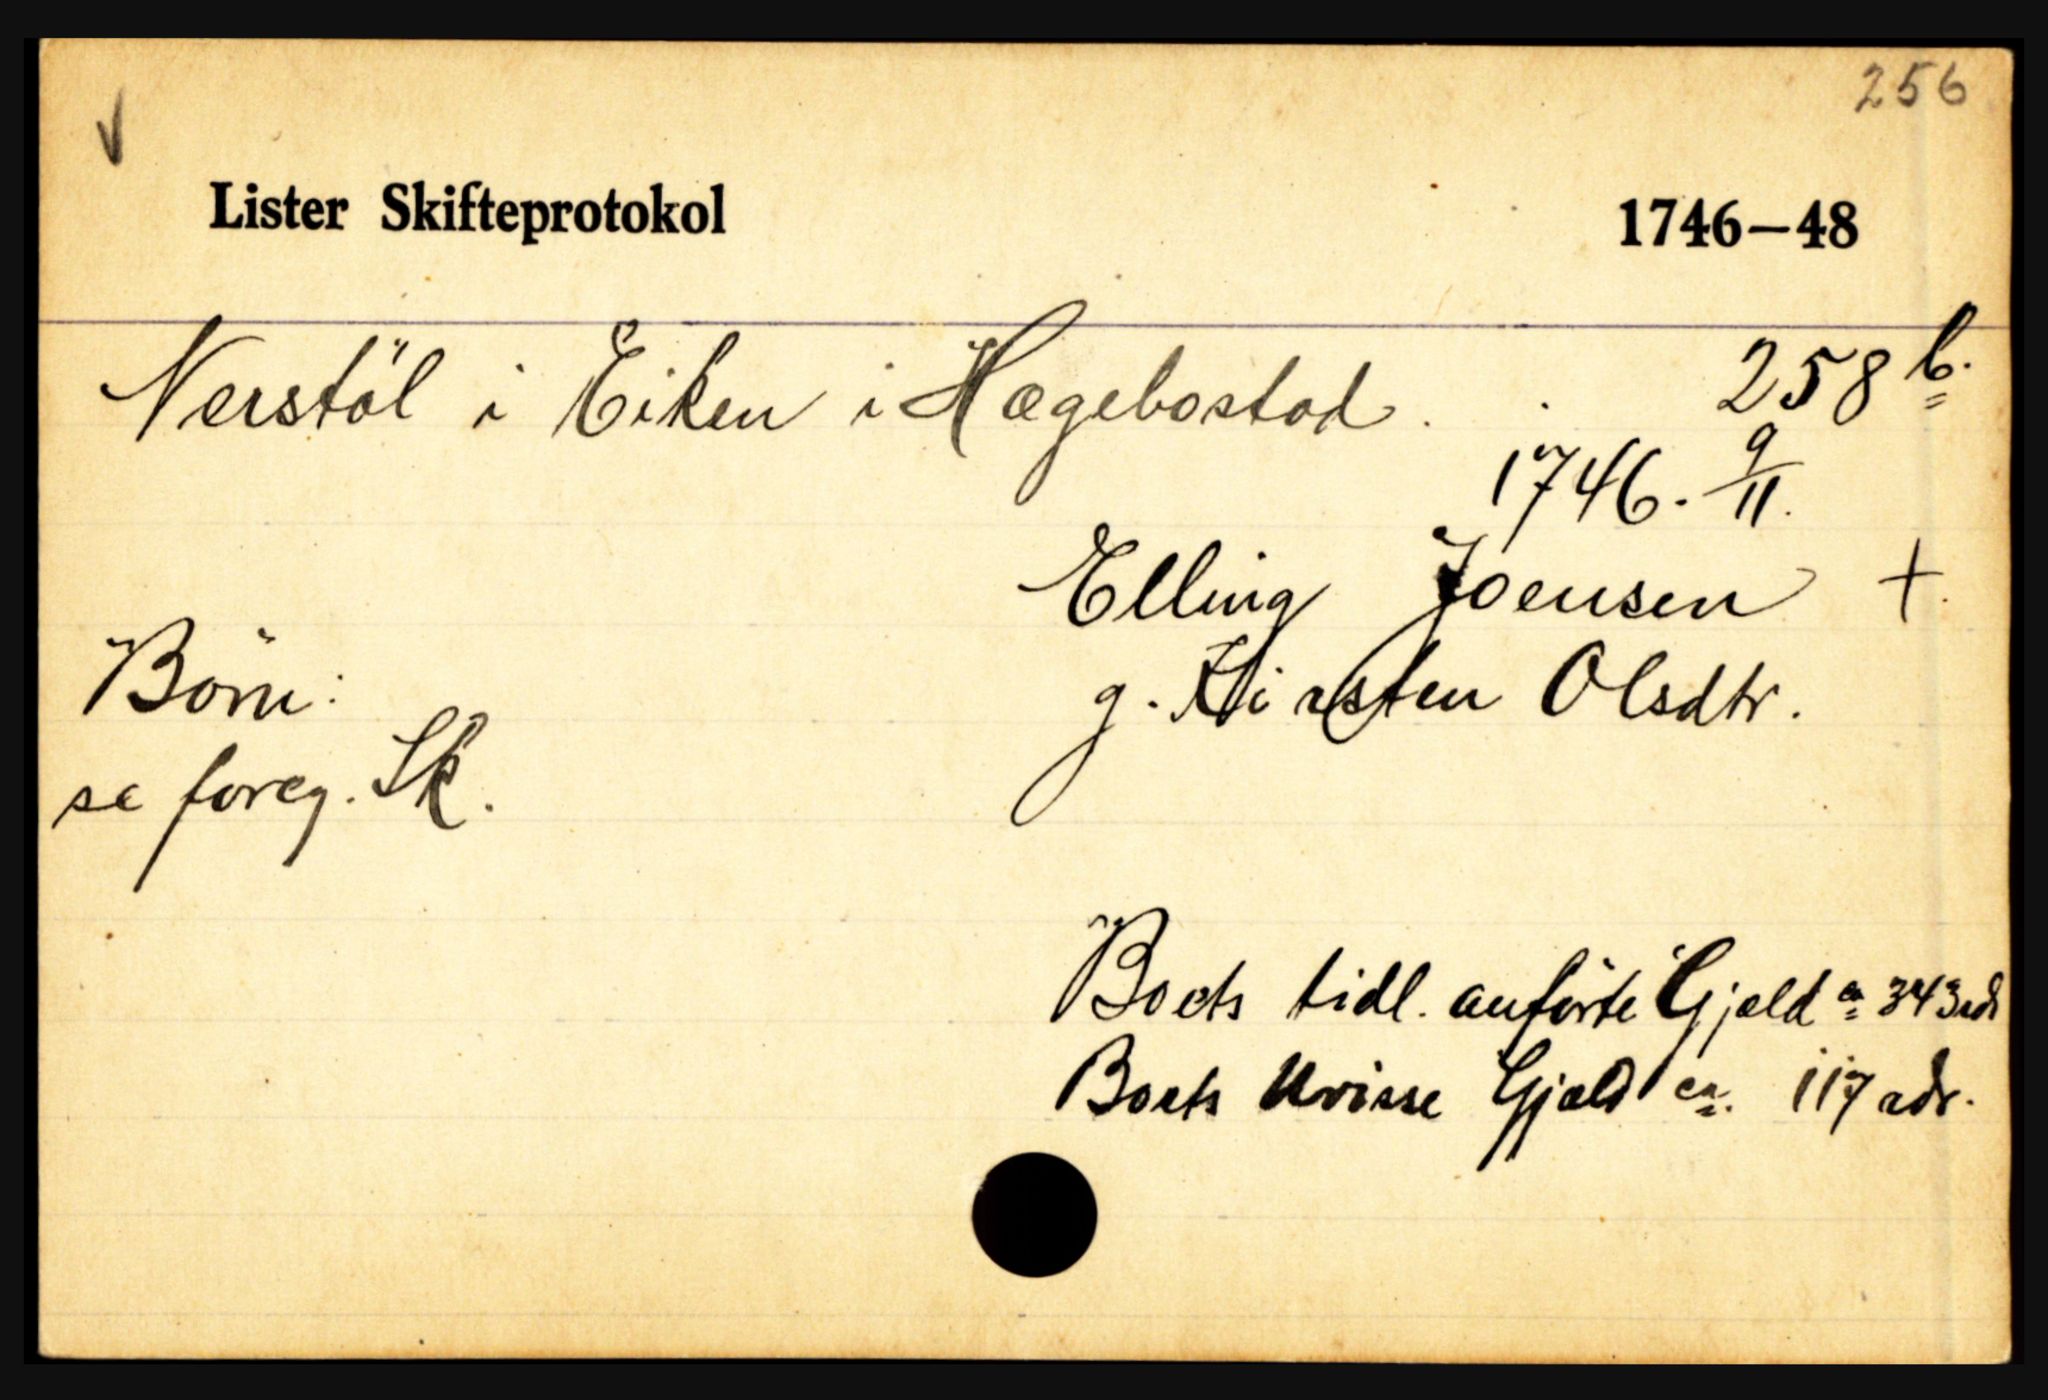 256
V
Lister Skifteprotokol 1746—48
Nerstöl i Eiken i Hægebostad. 258 b.
1746. 9/11.
Elling Joensen +
Börn: g. Kirsten Olsdtr.
se foreg. Sk.
Boets tidl. anförte Gjæld ca 343 rdr
Boets Uvisse Gjæld ca. 117 rdr.